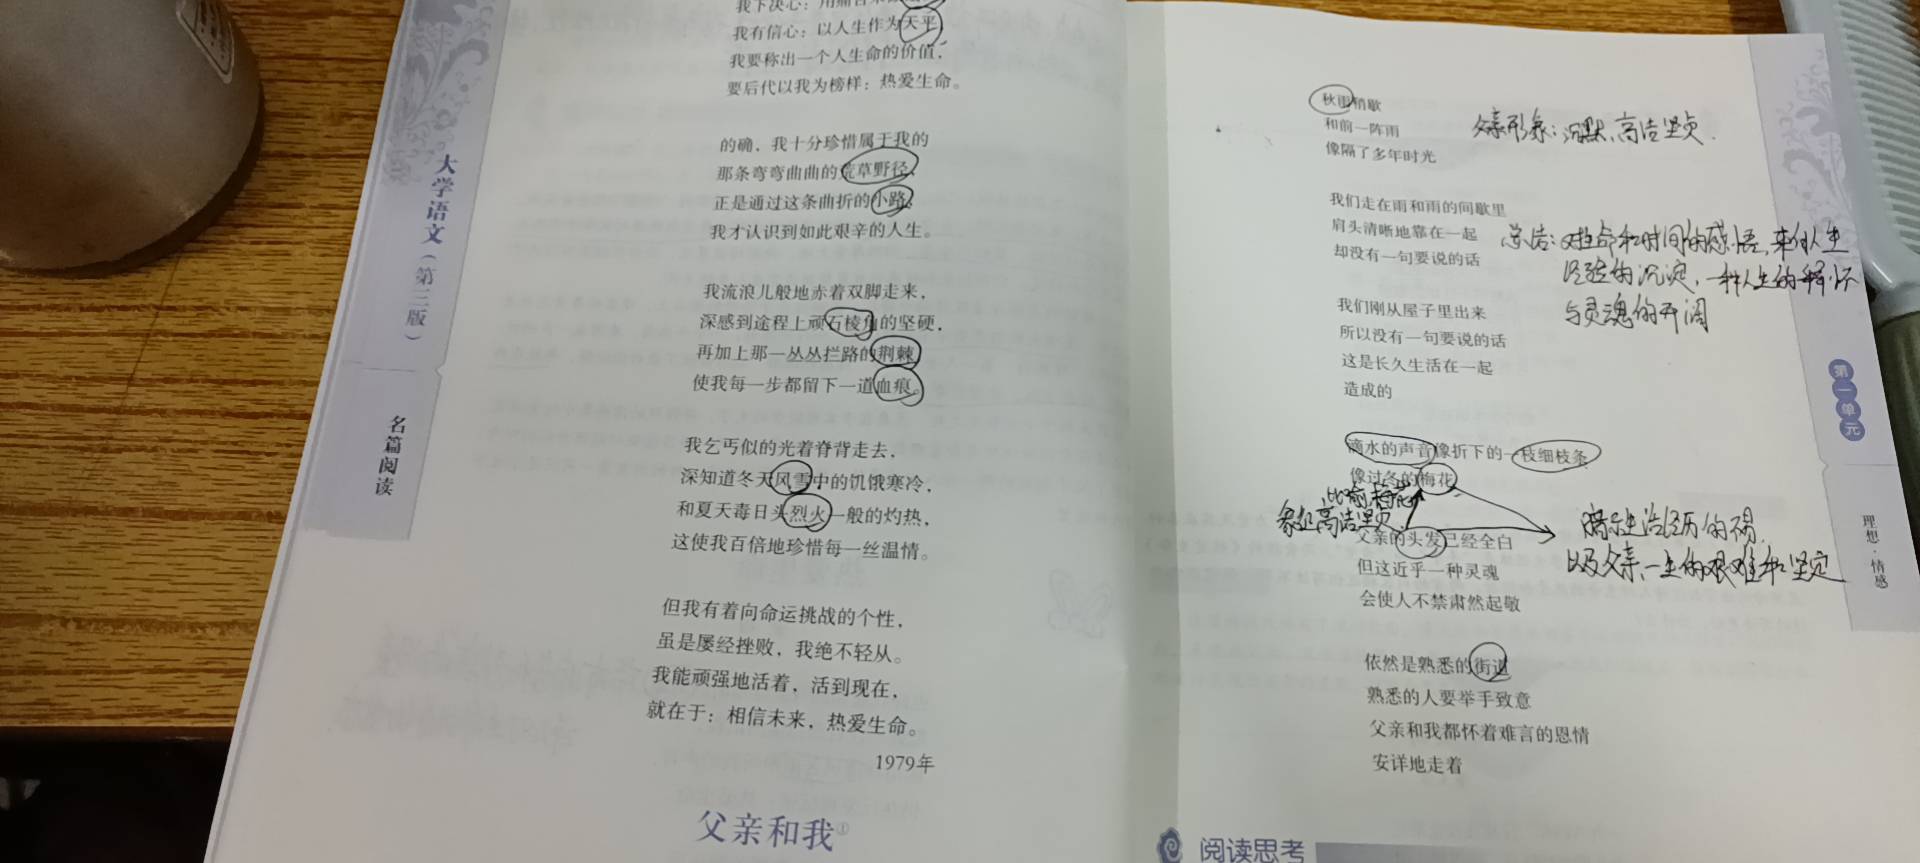 我有信心：以人生作为天平，
我要称出一个人生命的价值，
要后代以我为榜样：热爱生命。
的确，我十分珍惜属于我的
那条弯弯曲曲的荒草野径，
正是通过这条曲折的小路，
我才认识到如此艰辛的人生。
我流浪儿般地赤着双脚走来，
深感到途程上顽石棱角的坚硬，
再加上那一丛丛拦路的荆棘
使我每一步都留下一道血痕。
我乞丐似的光着脊背走去，
深知道冬天风雪中的饥饿寒冷，
和夏天毒日头烈火一般的灼热，
这使我百倍地珍惜每一丝温情。
但我有着向命运挑战的个性，
虽是屡经挫败，我绝不轻从。
我能顽强地活着，活到现在，
就在于：相信未来，热爱生命。
1979年
父亲和我①
大学语文（第三版）
名篇阅读
秋雨稍歇
和前一阵雨
像隔了多年时光
父亲形象：沉默、高洁坚贞.
我们走在雨和雨的间歇里
肩头清晰地靠在一起
却没有一句要说的话
总结：对生命和时间的感悟，来自人生
经验的沉淀，一种人生的释怀
与灵魂的开阔
我们刚从屋子里出来
所以没有一句要说的话
这是长久生活在一起
造成的
滴水的声音像折下的一枝细枝条
像过冬的梅花
比喻梅花
象征高洁坚贞
父亲的头发已经全白
但这近乎一种灵魂
会使人不禁肃然起敬
暗示生活经历的
以及父亲一生的艰难和坚定
依然是熟悉的街道
熟悉的人要举手致意
父亲和我都怀着难言的恩情
安详地走着
阅读思考
第一单元
理想·情感